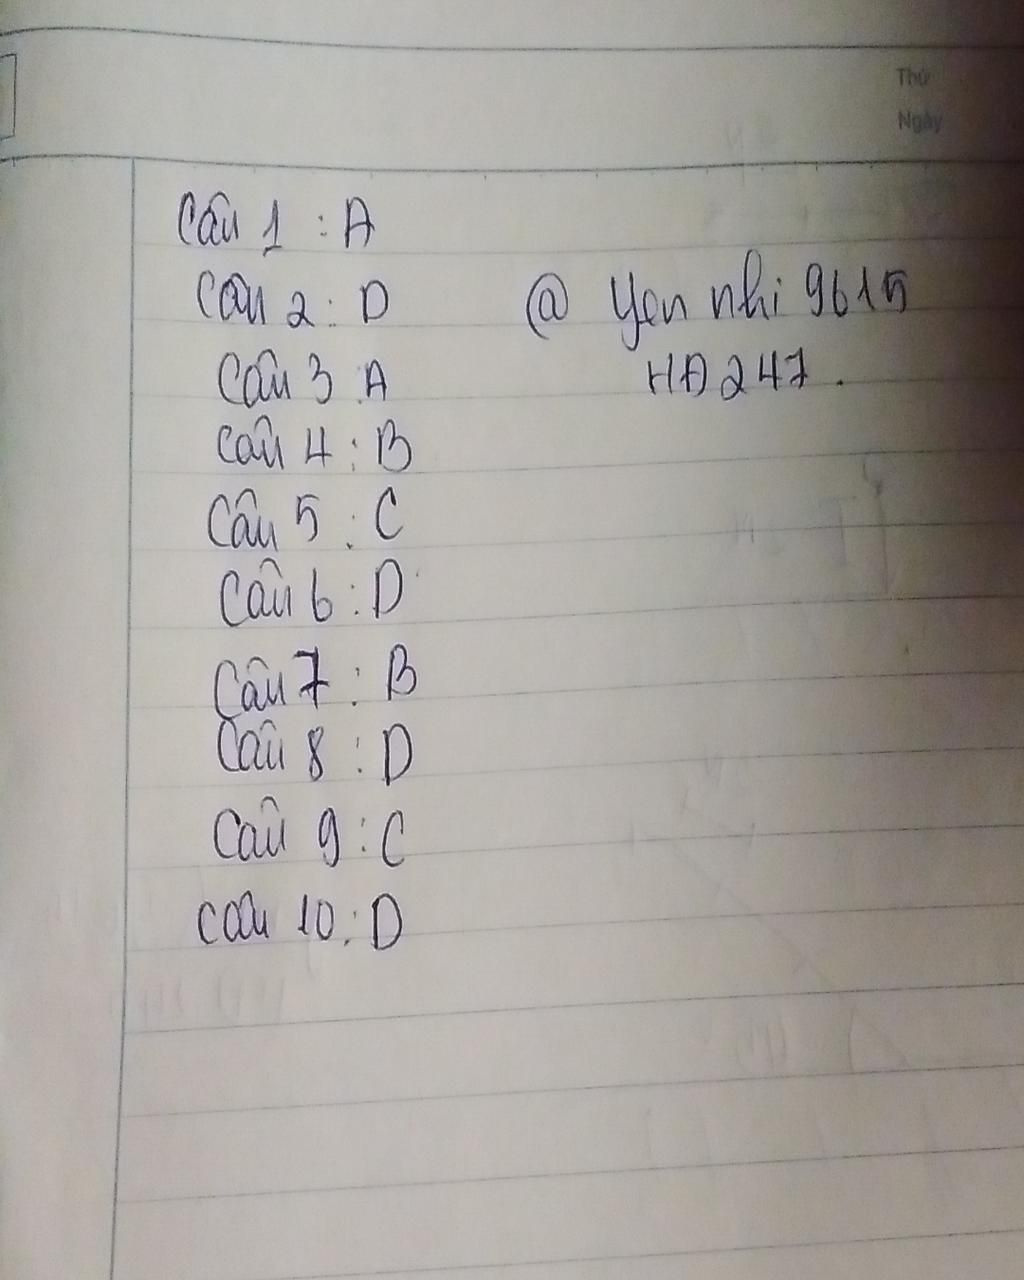 Thứ
Ngày
Câu 1 : A
Câu 2 : D
@ yen nhi 9615
Câu 3 : A
HD247.
Câu 4 : B
Câu 5 : C
Câu 6 : D
Câu 7 : B
Câu 8 : D
Câu 9 : C
Câu 10 : D